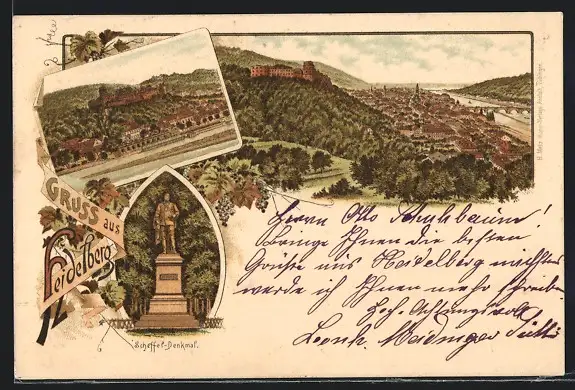 Gruss aus
Heidelberg
Scheffel-Denkmal.
Herrn Otto Schuhbaum!
Bringe Ihnen die besten
Grüße aus Heidelberg
werde ich Ihnen mehr schreiben
Hochachtungsvoll
Leonh. Meidinger